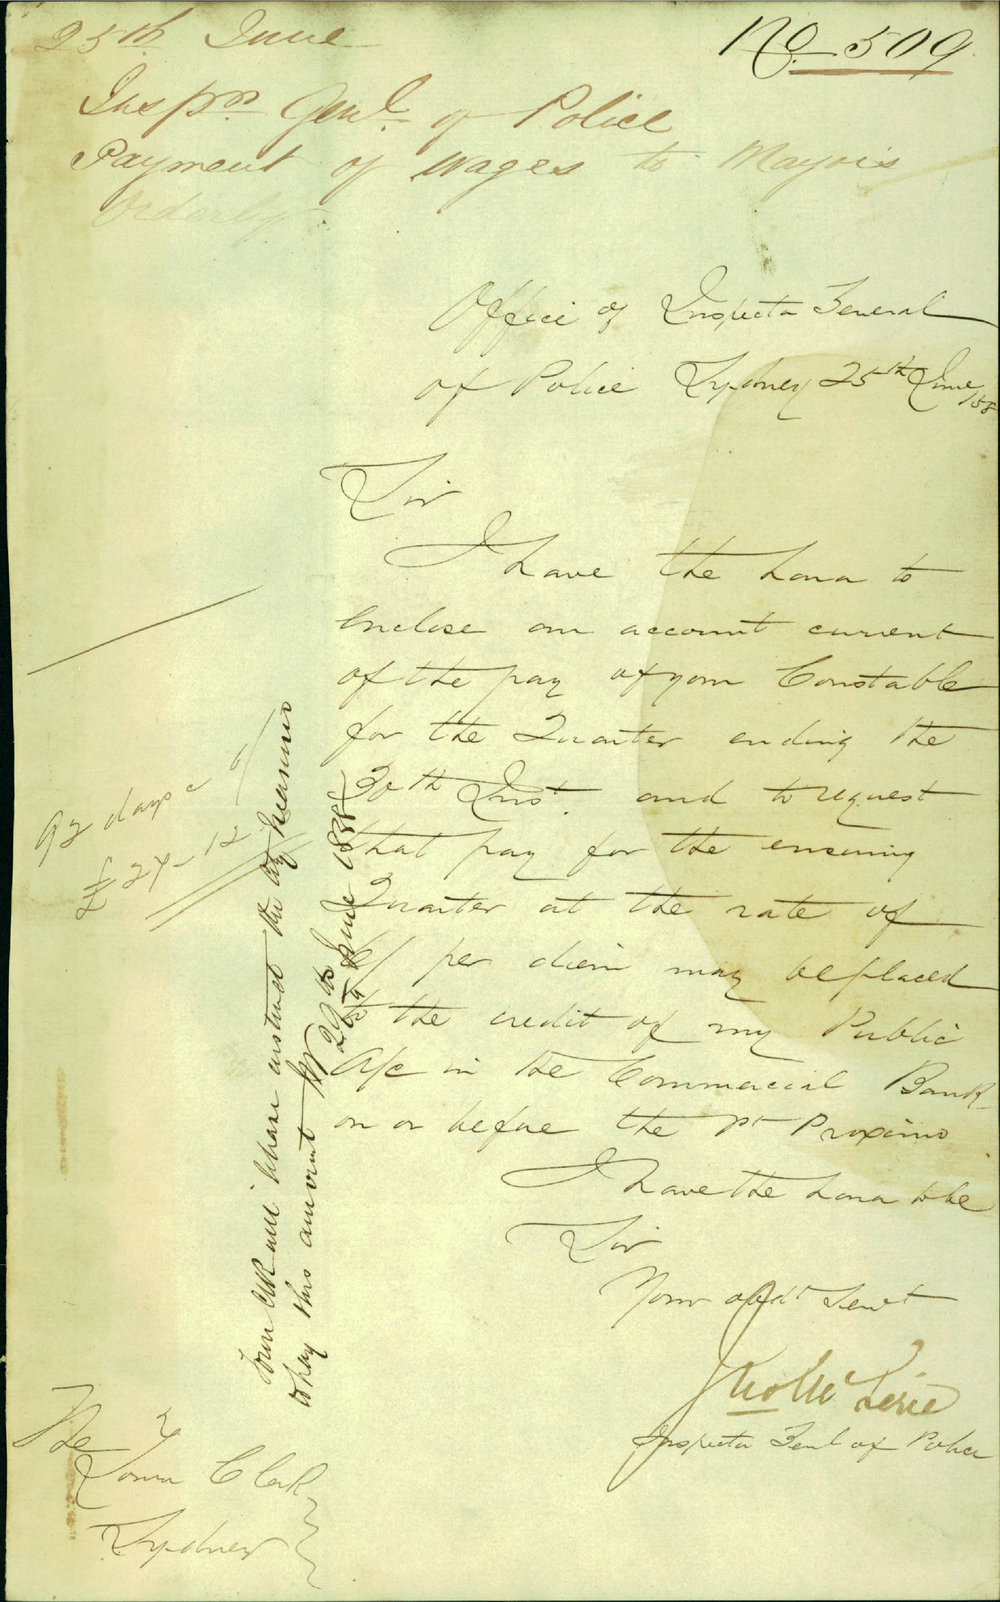 25th June
No 509
Inspr Genl of Police
Payment of wages to Mayor's
Orderly
Office of Inspector General
of Police Sydney 25th June /58
Sir
I have the honor to
enclose an account current
of the pay of your Constable
for the Quarter ending the
30th Inst. and to request
that pay for the ensuing
Quarter at the rate of
6/ per diem may be placed
to the credit of my Public
A/c in the Commercial Bank
on or before the 1st Proximo
I have the honor to be
Sir
Your obdt Servt
Jno McLerie
Inspector Genl of Police
The
Town Clerk
Sydney
92 days @ 6/
£27-12
Town Clerk will please instruct the City Treasurer
to pay this amount
29th June 1858